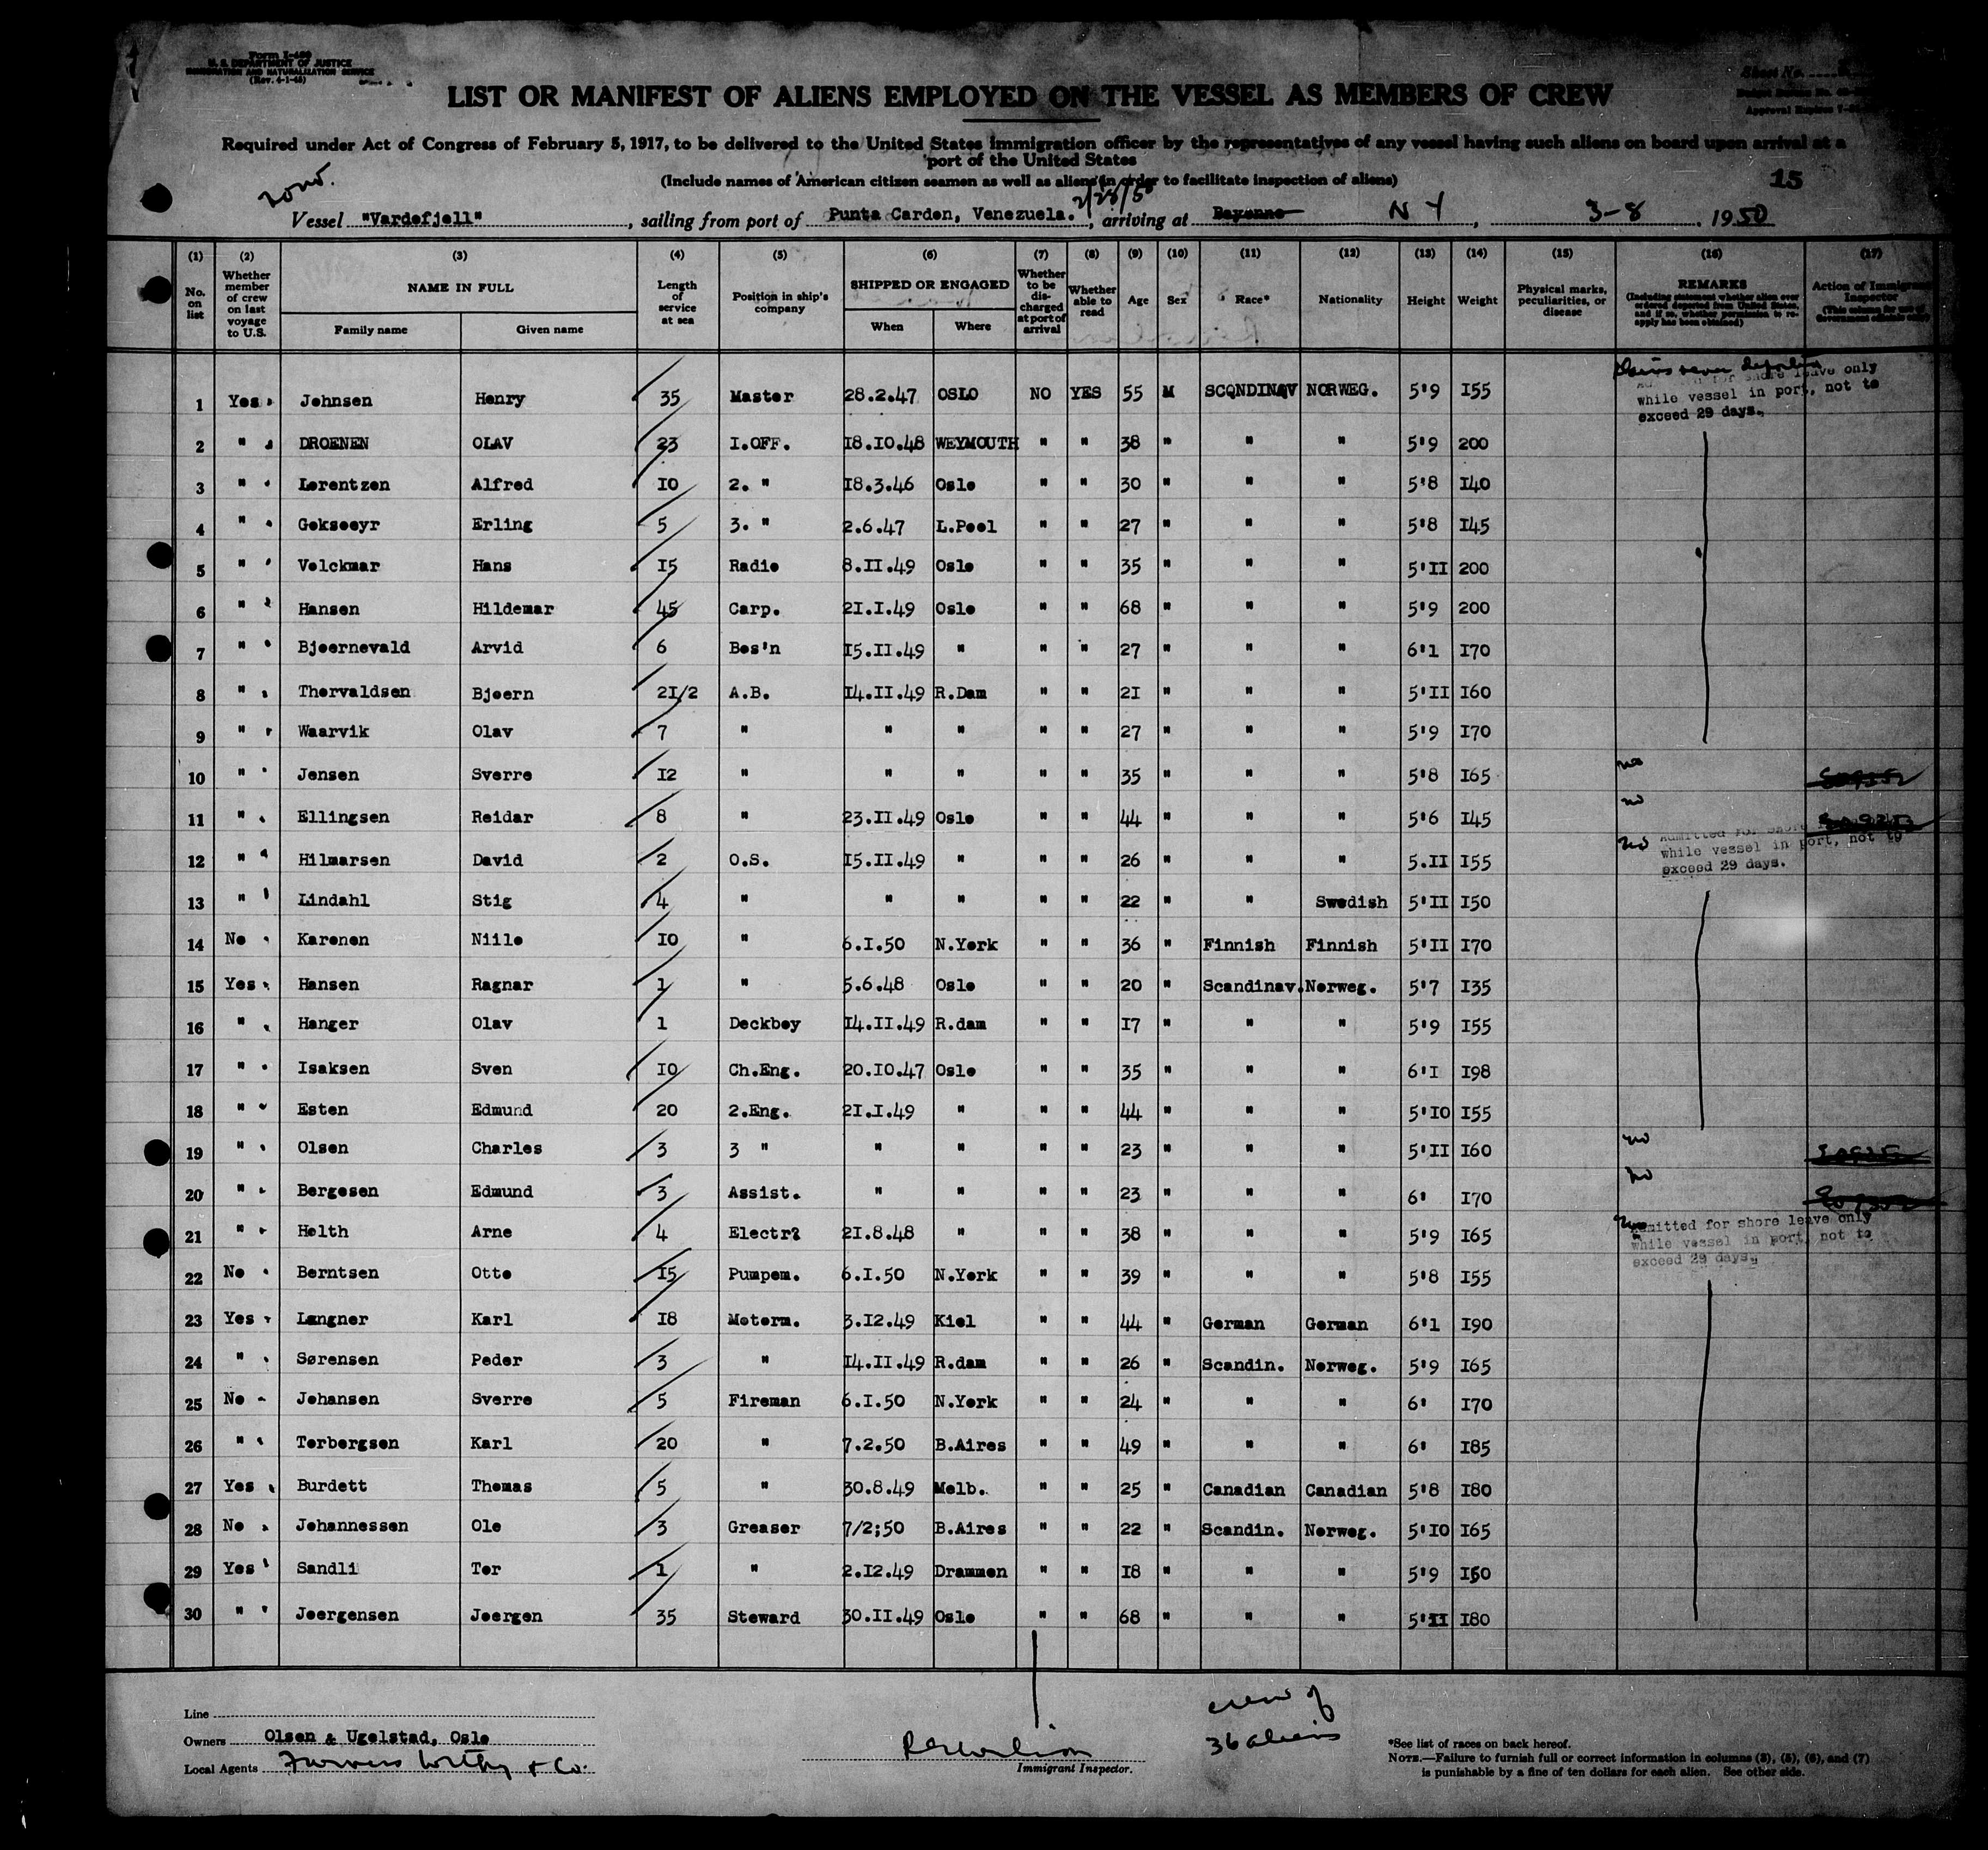 Form I-489
U. S. DEPARTMENT OF JUSTICE
IMMIGRATION AND NATURALIZATION SERVICE
(Rev. 4-1-45)
Sheet No.
Approval Expires
LIST OR MANIFEST OF ALIENS EMPLOYED ON THE VESSEL AS MEMBERS OF CREW
Required under Act of Congress of February 5, 1917, to be delivered to the United States immigration officer by the representatives of any vessel having such aliens on board upon arrival at a
port of the United States
(Include names of American citizen seamen as well as aliens in order to facilitate inspection of aliens)
15
Vessel "Vardefjell", sailing from port of Punta Carden, Venezuela. 2/28/50, arriving at Bayonne N Y, 3-8, 1950
(1) (2) (3) (4) (5) (6) (7) (8) (9) (10) (11) (12) (13) (14) (15) (16) (17)
No. on list | Whether member of crew on last voyage to U.S. | NAME IN FULL Family name Given name | Length of service at sea | Position in ship's company | SHIPPED OR ENGAGED When Where | Whether to be discharged at port of arrival | Whether able to read | Age | Sex | Race* | Nationality | Height | Weight | Physical marks, peculiarities, or disease | REMARKS (Including statement whether alien ever ordered deported from United States, and if so, whether permission to reapply has been obtained) | Action of Immigrant Inspector (This column for use of Government officials only)
1 Yes Johnsen Henry 35 Master 28.2.47 OSLO NO YES 55 M SCQNDINAV NORWEG. 5'9 I55 shore leave only while vessel in port, not to exceed 29 days.
2 " DROENEN OLAV 23 I.OFF. I8.I0.48 WEYMOUTH " " 38 " " " 5'9 200
3 " Lorentzen Alfred I0 2. " I8.3.46 Oslo " " 30 " " " 5'8 I40
4 " Goksoeyr Erling 5 3. " 2.6.47 L.Pool " " 27 " " " 5'8 I45
5 " Volckmar Hans I5 Radio 8.II.49 Oslo " " 35 " " " 5'II 200
6 " Hansen Hildemar 45 Carp. 2I.I.49 Oslo " " 68 " " " 5'9 200
7 " Bjoernevald Arvid 6 Bos'n I5.II.49 " " " 27 " " " 6'1 I70
8 " Thorvaldsen Bjoern 2I/2 A.B. I4.II.49 R.Dam " " 2I " " " 5'II I60
9 " Waarvik Olav 7 " " " " " 27 " " " 5'9 I70
10 " Jensen Sverre I2 " " " " " 35 " " " 5'8 I65 no
11 " Ellingsen Reidar 8 " 23.II.49 Oslo " " 44 " " " 5'6 I45 no
12 " Hilmarsen David 2 O.S. I5.II.49 " " " 26 " " " 5.II I55 no Admitted for shore while vessel in port, not to exceed 29 days.
13 " Lindahl Stig 4 " " " " " 22 " " Swedish 5'II I50
14 No Karonen Niilo I0 " 6.I.50 N.York " " 36 " Finnish Finnish 5'II I70
15 Yes Hansen Ragnar 1 " 5.6.48 Oslo " " 20 " Scandinav. Norweg. 5'7 I35
16 " Hanger Olav 1 Deckboy I4.II.49 R.dam " " I7 " " " 5'9 I55
17 " Isaksen Sven I0 Ch.Eng. 20.I0.47 Oslo " " 35 " " " 6'I I98
18 " Esten Edmund 20 2.Eng. 2I.I.49 " " " 44 " " " 5'I0 I55
19 " Olsen Charles 3 3 " " " " " 23 " " " 5'II I60 no
20 " Bergesen Edmund 3 Assist. " " " " 23 " " " 6' I70 no
21 " Holth Arne 4 Electr? 2I.8.48 " " " 38 " " " 5'9 I65 no Admitted for shore leave only while vessel in port, not to exceed 29 days.
22 No Berntsen Otto I5 Pumpem. 6.I.50 N.York " " 39 " " " 5'8 I55
23 Yes Langner Karl I8 Motorm. 3.I2.49 Kiel " " 44 " German German 6'1 I90
24 " Sørensen Peder 3 " I4.II.49 R.dam " " 26 " Scandin. Norweg. 5'9 I65
25 No Johansen Sverre 5 Fireman 6.I.50 N.York " " 24 " " " 6' I70
26 " Torbergsen Karl 20 " 7.2.50 B.Aires " " 49 " " " 6' I85
27 Yes Burdett Thomas 5 " 30.8.49 Melb. " " 25 " Canadian Canadian 5'8 I80
28 No Johannessen Ole 3 Greaser 7/2;50 B.Aires " " 22 " Scandin. Norweg. 5'I0 I65
29 Yes Sandli Tor 1 " 2.I2.49 Drammen " " I8 " " " 5'9 I60
30 " Joergensen Joergen 35 Steward 30.II.49 Oslo " " 68 " " " 5'II I80
Line
Owners Olsen & Ugelstad, Oslo
Local Agents Furness Withy & Co.
Immigrant Inspector.
crew of
36 aliens
*See list of races on back hereof.
NOTE.—Failure to furnish full or correct information in columns (3), (5), (6), and (7)
is punishable by a fine of ten dollars for each alien. See other side.